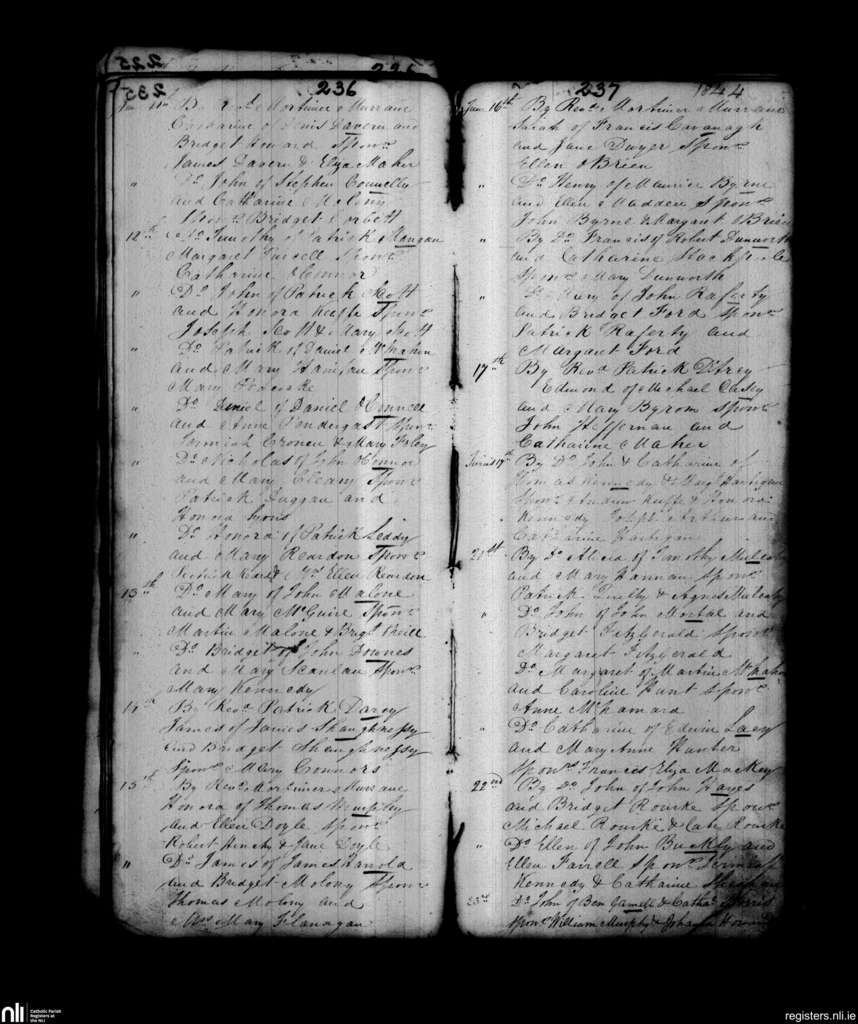 225
235
236
11th By Revd Mortimer Murnane
Catharine of Denis Davern and
Bridget Howard Sponrs
James Davern & Eliza Maher
" Do John of Stephen Connelly
and Catharine Molony
Bridget Corbett
12th Do Timothy of Patrick Mangan
Margaret Sponrs
Catharine OConnor
" Do John of Patrick Scott
and Honora Keeffe Sponrs
Joseph Scott & Mary Scott
" Do Patrick of Daniel McMahon
and Mary Sponrs
Mary
" Do Daniel of Daniel OConnell
and Anne Pendergast Sponrs
Jermiah Cronen & Mary Foley
" Do Nicholas of John OConnor
and Mary Sponrs
Patrick Duggan and
Honora Lyons
" Do Honora of Patrick Leddy
and Mary Reardon Sponrs
Ellen Reardon
13th Do Mary of John Malone
and Mary McGuire Sponrs
Martin Malone & Brigt
" Do Bridget of John Downes
and Mary Scanlan Sponrs
Mary Kennedy
14th By Revd Patrick Darcy
James of James Shaughnessy
and Bridget Shaughnessy
Sponrs Mary Connors
15th By Revd Mortimer Murnane
Honora of Thomas Murphy
and Ellen Doyle Sponrs
Robert & Jane Doyle
" Do James of James Arnold
and Bridget Molony Sponrs
Thomas Molony and
Mary Flanagan
237 1844
June 16th By Revd Mortimer Murnane
Sarah of Francis Cavanagh
and Jane Dwyer Sponrs
Ellen OBrien
" Do Henry of Maurice Byrne
and Ellen Madden Sponrs
John Byrne & Margaret OBrien
" By Do Francis of Robert Dunworth
and Catharine
Sponrs Mary Dunworth
" Do Mary of John Raferty
and Bridget Ford Sponrs
Patrick Raferty and
Margaret Ford
17th By Revd Patrick DArcy
Edmond of Michael Casey
and Mary Byrom Sponrs
John Heffernan and
Catharine Maher
17th By Do John & Catharine of
Thomas Kennedy & Hartigan
Sponrs Andrew Keeffe & Honora
Kennedy Joseph Arthur and
Catharine Hartigan
21st By Do of Timothy Mulcahy
and Mary Hannan Sponrs
Patrick & Agnes Mulcahy
" Do John of John Mortal and
Bridget FitzGerald Sponrs
Margaret FitzGerald
Do Margaret of Martin McMahon
and Caroline Hunt Sponrs
Anne McNamara
" Do Catharine of Edwin Lacy
and Mary Anne Hunter
Sponrs Francis Eliza Mackey
22nd By Do John of John Hayes
and Bridget Rourke Sponrs
Michael Rourke & Cate Rourke
" Do Ellen of John Buckly and
Ellen Farrell Sponrs Jermiah
Kennedy & Catharine
23rd Do John of Ben & Cathe
Sponrs William Murphy & Johanna
nli
Catholic Parish
Registers at
the NLI
registers.nli.ie